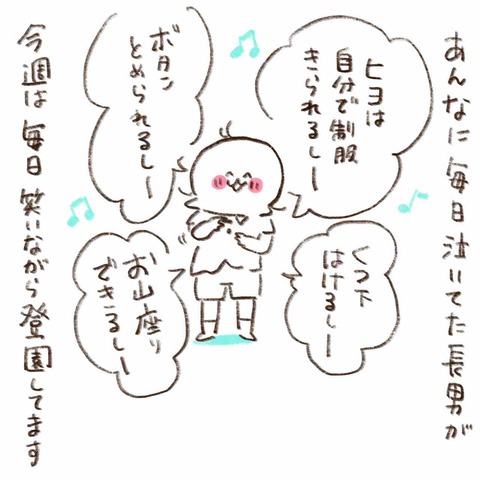 あんなに毎日泣いてた長男が
ヒヨは
自分で制服
きられるしー
ボタン
とめられるしー
くつ下
はけるしー
お山座り
できるしー
今週は毎日笑いながら登園してます